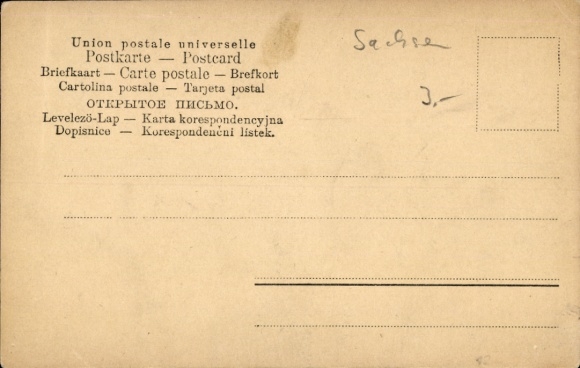 Union postale universelle
Postkarte — Postcard
Briefkaart — Carte postale — Brefkort
Cartolina postale — Tarjeta postal
ОТКРЫТОЕ ПИСЬМО.
Levelező-Lap — Karta korespondencyjna
Dopisnice — Korespondenční lístek.
Sachsen
3,-